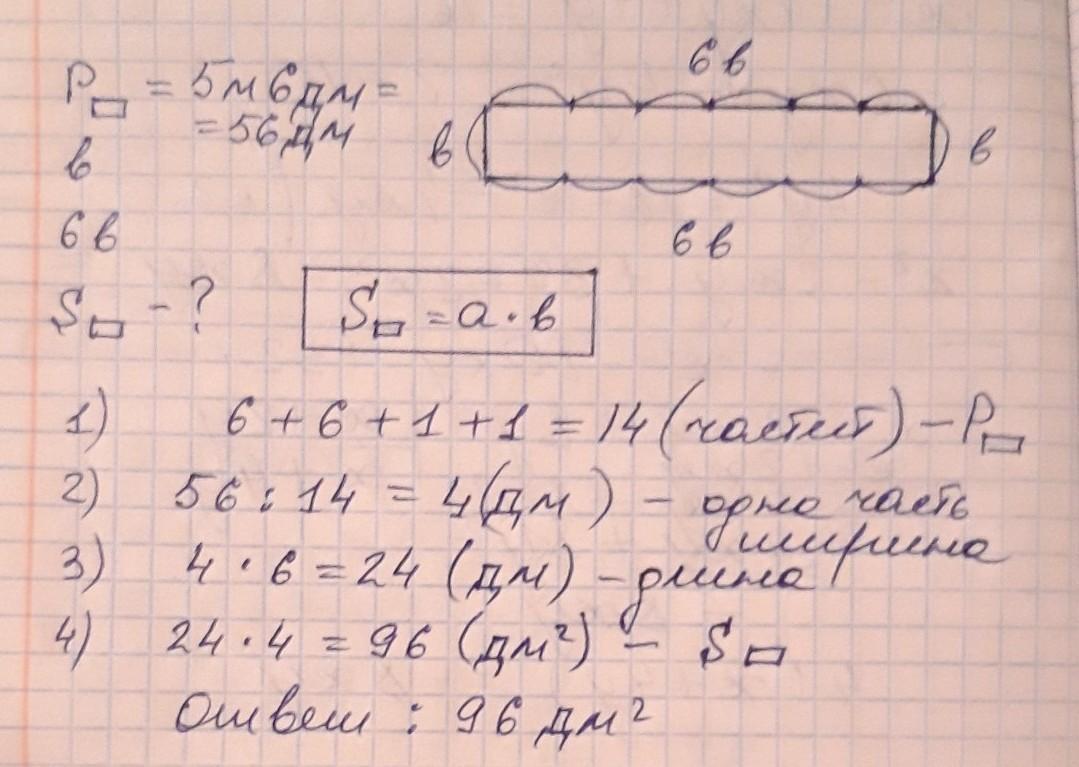 P▭ = 5м 6дм =
= 56дм
в
6в
S▭ - ?
6в
в
в
6в
S▭ = а · в
1) 6 + 6 + 1 + 1 = 14 (частит) - P▭
2) 56 : 14 = 4(дм) - одна часть
ширина
3) 4 · 6 = 24 (дм) - длина
4) 24 · 4 = 96 (дм²) - S▭
Ответ : 96 дм²